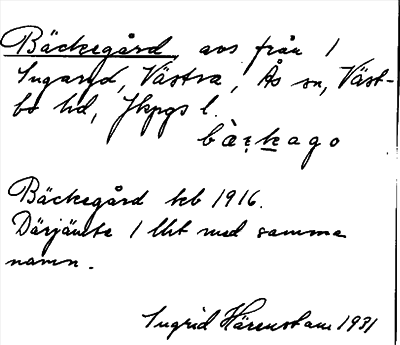 Bäckegård avs från 1
Ingaryd, Västra, Ås sn, Väst-
bo hd, Jkpgs l.
Bäckegård tcb 1916.
Därjämte 1 lht med samma
namn.
Ingrid Härenstam 1931